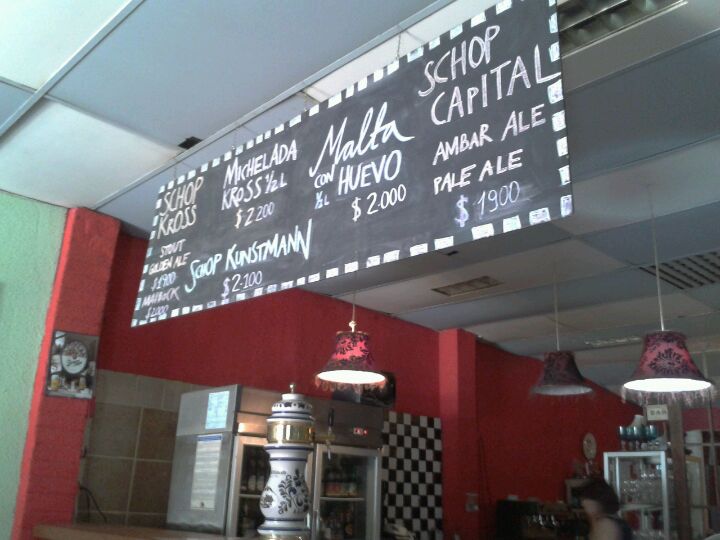 SCHOP
KROSS
STOUT
GOLDEN ALE
$1900
MAIBOCK
$2000
MICHELADA
KROSS ½ L
$2200
SCHOP KUNSTMANN
$2.100
Malta
CON
½L HUEVO
$2.000
SCHOP
CAPITAL
AMBAR ALE
PALE ALE
$1900